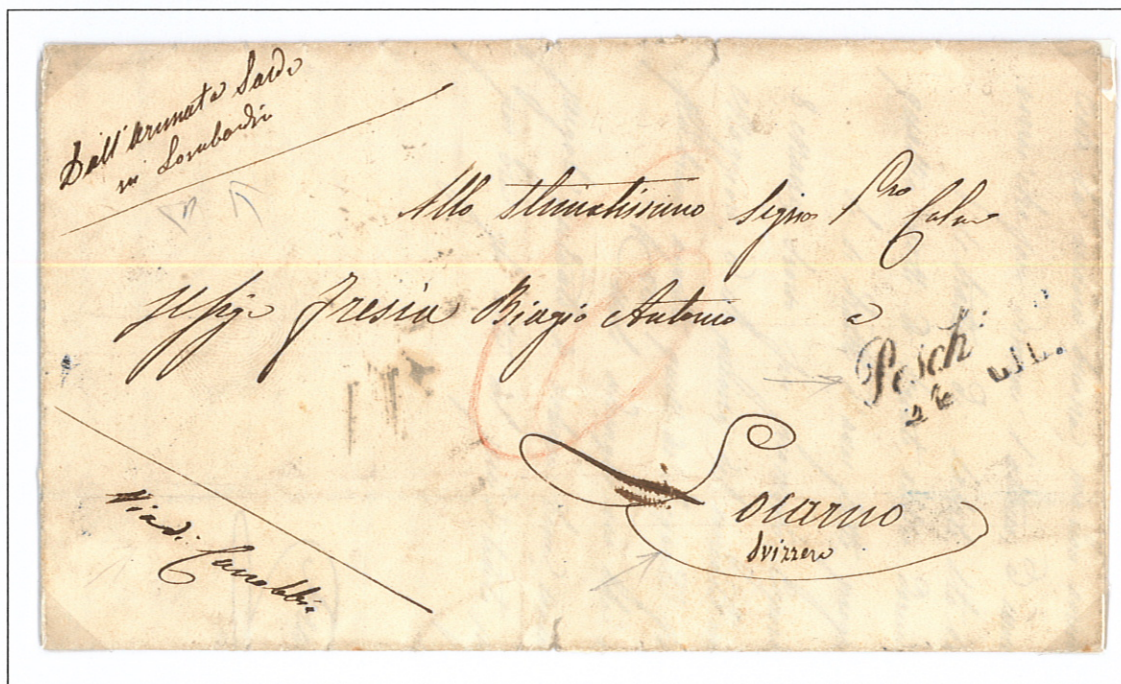 Dall'Armata Sarda
in Lombardia
Allo Stimatissimo Signor
Fressia Biagio Antonio a
Pesch
24 LUL.
Locarno
Svizzero
Via di Cannobbio